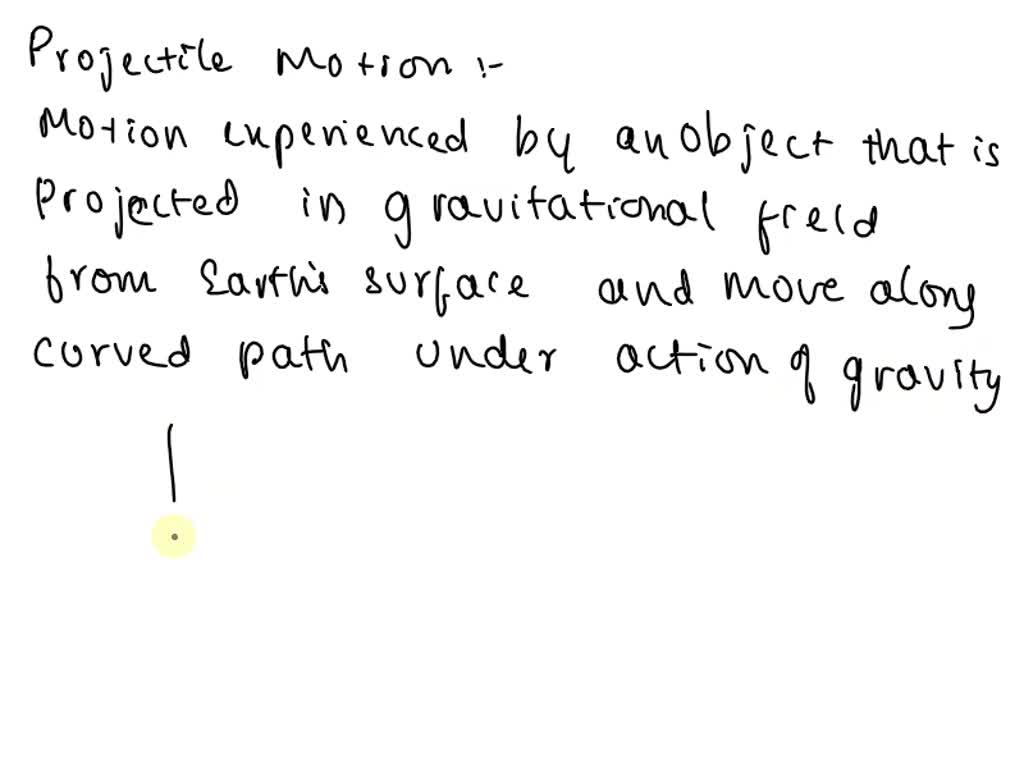 Projectile Motion :-
Motion experienced by an Object that is
Projected in gravitational field
from Earth's surface and move along
curved path under action of gravity